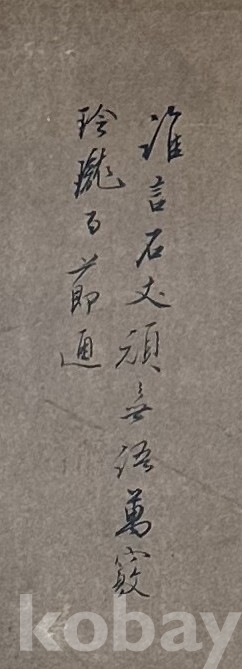 誰言石丈頑無語萬竅
玲瓏百節通
kobay